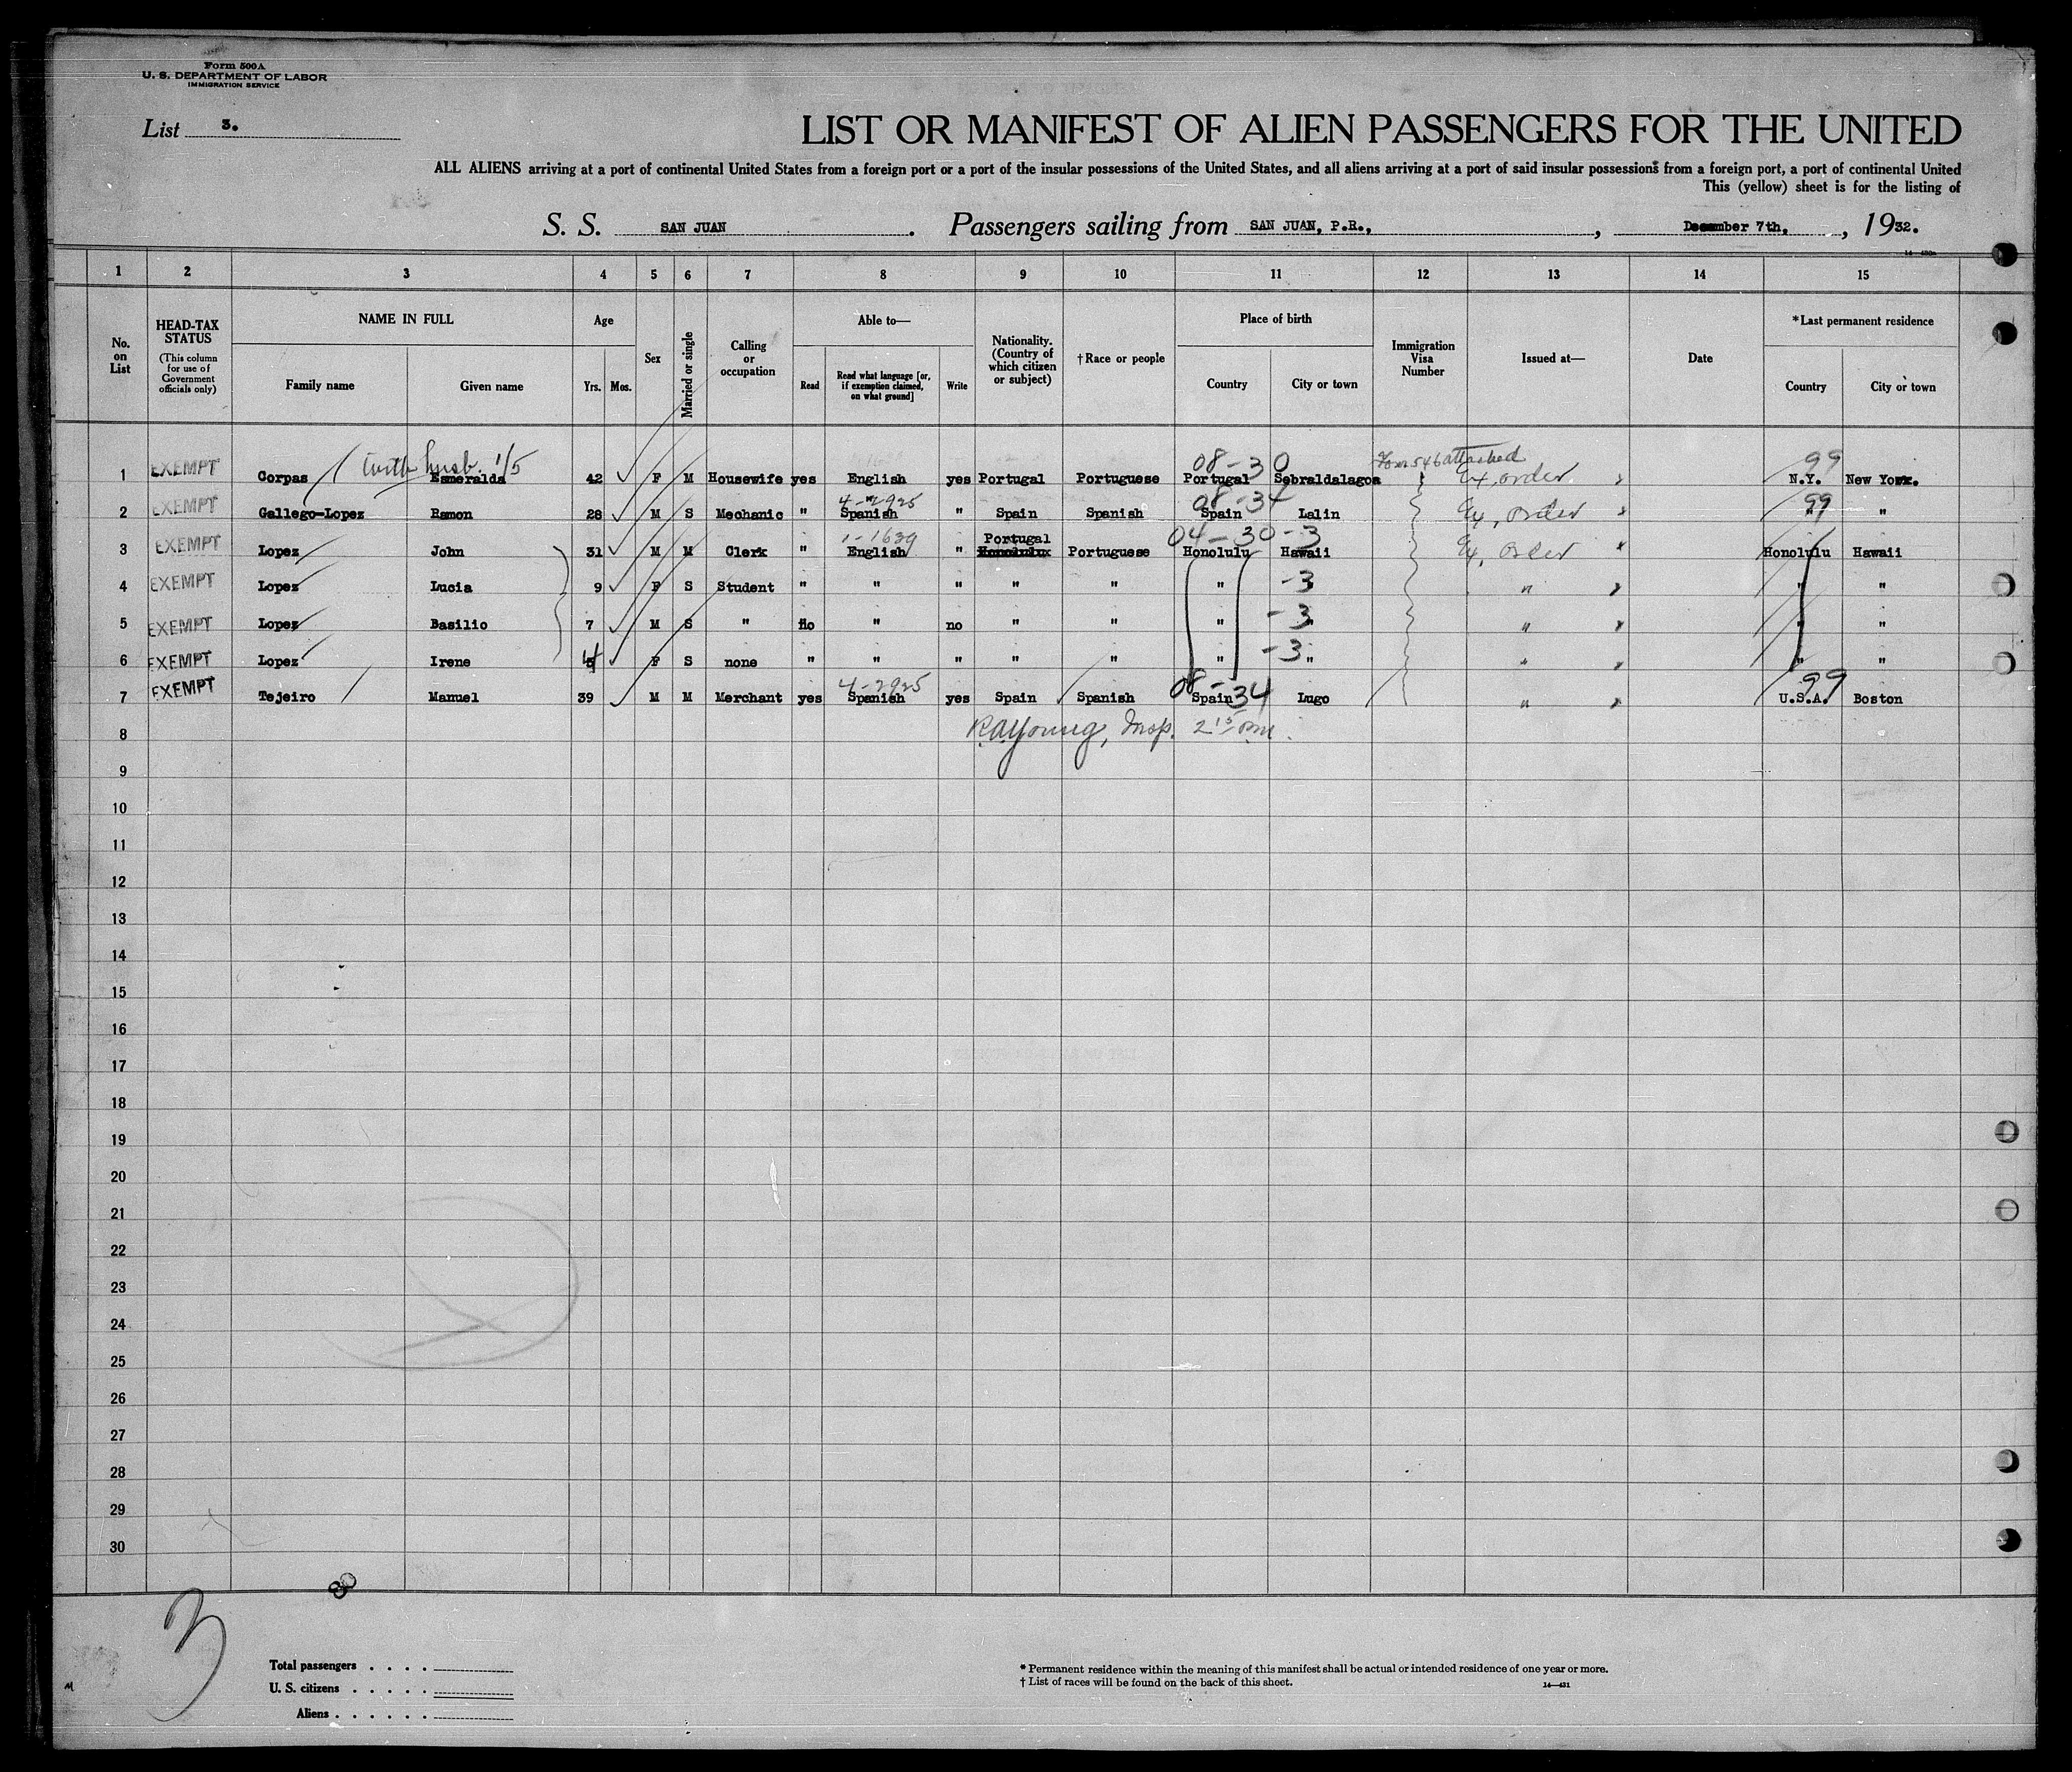 Form 500A
U. S. DEPARTMENT OF LABOR
IMMIGRATION SERVICE
List 3.
LIST OR MANIFEST OF ALIEN PASSENGERS FOR THE UNITED
ALL ALIENS arriving at a port of continental United States from a foreign port or a port of the insular possessions of the United States, and all aliens arriving at a port of said insular possessions from a foreign port, a port of continental United
This (yellow) sheet is for the listing of
S. S. SAN JUAN . Passengers sailing from SAN JUAN, P.R., , December 7th. , 1932.
1 2 3 4 5 6 7 8 9 10 11 12 13 14 15
No. on List
HEAD-TAX STATUS (This column for use of Government officials only)
NAME IN FULL Family name Given name
Age Yrs. Mos.
Sex
Married or single
Calling or occupation
Able to— Read Read what language [or, if exemption claimed, on what ground] Write
Nationality. (Country of which citizen or subject)
†Race or people
Place of birth Country City or town
Immigration Visa Number
Issued at—
Date
*Last permanent residence Country City or town
with husb. 1/5 08-30 Form 546 attached 99
1 EXEMPT Corpas Esmeralda 42 F M Housewife yes English yes Portugal Portuguese Portugal Sebraldalagoa Ex, order N.Y. New York.
4-2925 08-34 99
2 EXEMPT Gallego-Lopez Ramon 28 M S Mechanic " Spanish " Spain Spanish Spain Lalin Ex, order " "
1-1639 Portugal 04-30-3
3 EXEMPT Lopez John 31 M M Clerk " English " Honolulu Portuguese Honolulu Hawaii Ex, order Honolulu Hawaii
4 EXEMPT Lopez Lucia 9 F S Student " " " " " " -3 " " " "
5 EXEMPT Lopez Basilio 7 M S " No " no " " " -3 " " " "
6 EXEMPT Lopez Irene 4 F S none " " " " " " -3 " " " "
4-2925 08-34 99
7 EXEMPT Tejeiro Manuel 39 M M Merchant yes Spanish yes Spain Spanish Spain Lugo " U.S.A. Boston
8 RAYoung, Insp. 2 15 PM.
9
10
11
12
13
14
15
16
17
18
19
20
21
22
23
24
25
26
27
28
29
30
3
Total passengers . . . .
U. S. citizens . . . . .
Aliens . . . . . .
* Permanent residence within the meaning of this manifest shall be actual or intended residence of one year or more.
† List of races will be found on the back of this sheet.
14—431